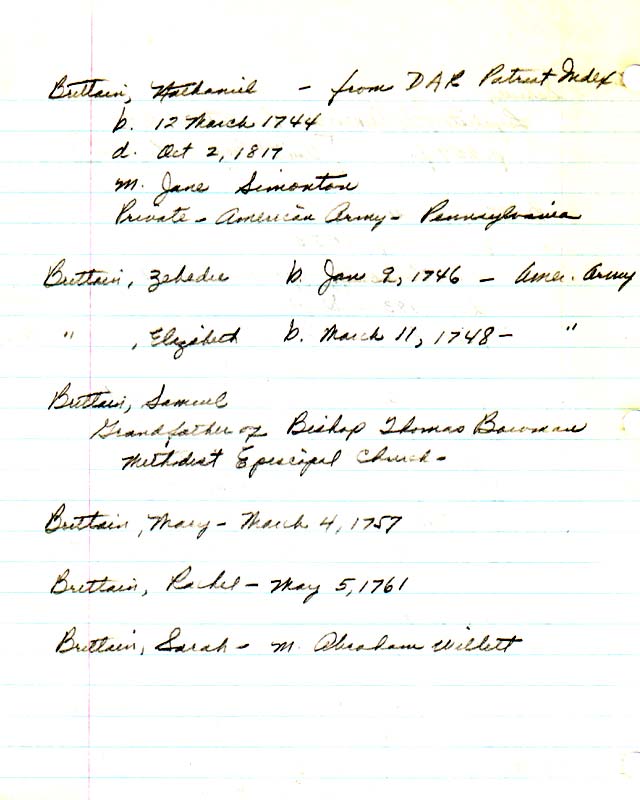 Brittain, Nathaniel - from DAR Patriot Index
b. 12 March 1744
d. Oct 2, 1817
m. Jane Simonton
Private - American Army - Pennsylvania
Brittain, Zebedee b. Jan 2, 1746 - Amer. Army
" , Elizabeth b. March 11, 1748 - "
Brittain, Samuel
Grandfather of Bishop Thomas Bowman
Methodist Episcopal Church -
Brittain, Mary - March 4, 1757
Brittain, Rachel - May 5, 1761
Brittain, Sarah - m. Abraham Willett